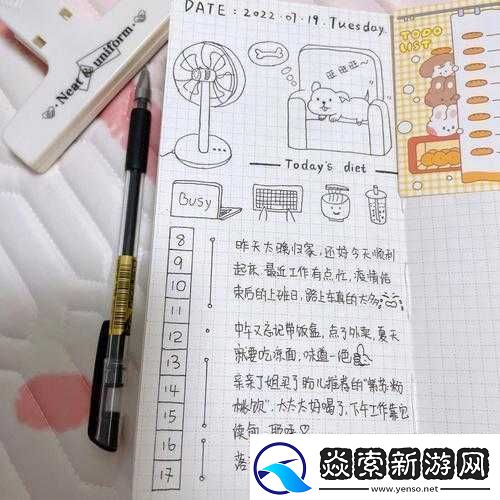 Neat & uniform
DATE: 2022.07.19.Tuesday.
TODO
LIST
旺旺~
Today's diet
Busy
8
昨天太晚归家，还好今天顺利
9
起床，最近工作有点忙，疫情结
10
束后的上班日，路上车真的太多
11
12
中午又忘记带饭盒，点了外卖，夏天
13
就要吃凉面，味道一绝
14
亲亲丁姐买了胎儿推荐的“紫苏粉
桃饮”，太太太好喝了，下午工作靠它
15
使劲，耶呼
16
落
17
焱索新游网
www.yenso.net